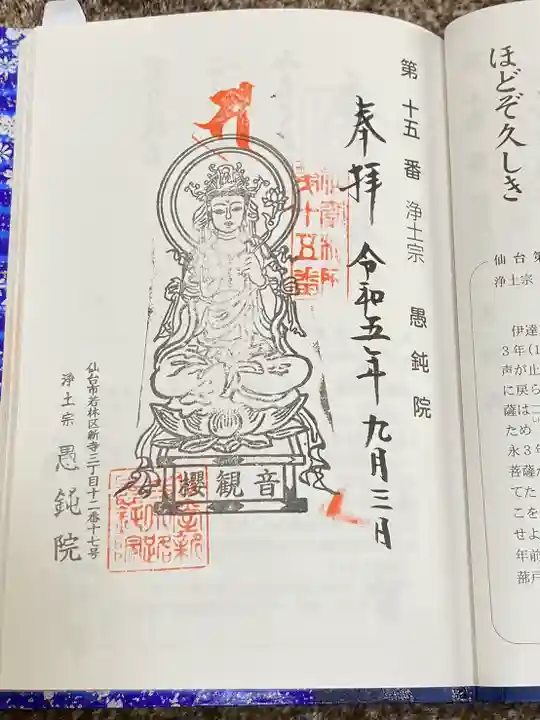 ほどぞ久しき
仙台第
浄土宗
伊達
3年(1
声が止
に戻ら
薩は
ため
永3年
菩薩が
てた
こを
せよ
年前
蔀戸
第十五番 浄土宗 愚鈍院
奉拝 令和五年九月三日
十五番
櫻観音
仙台市若林区新寺三丁目十二番十七号
浄土宗 愚鈍院